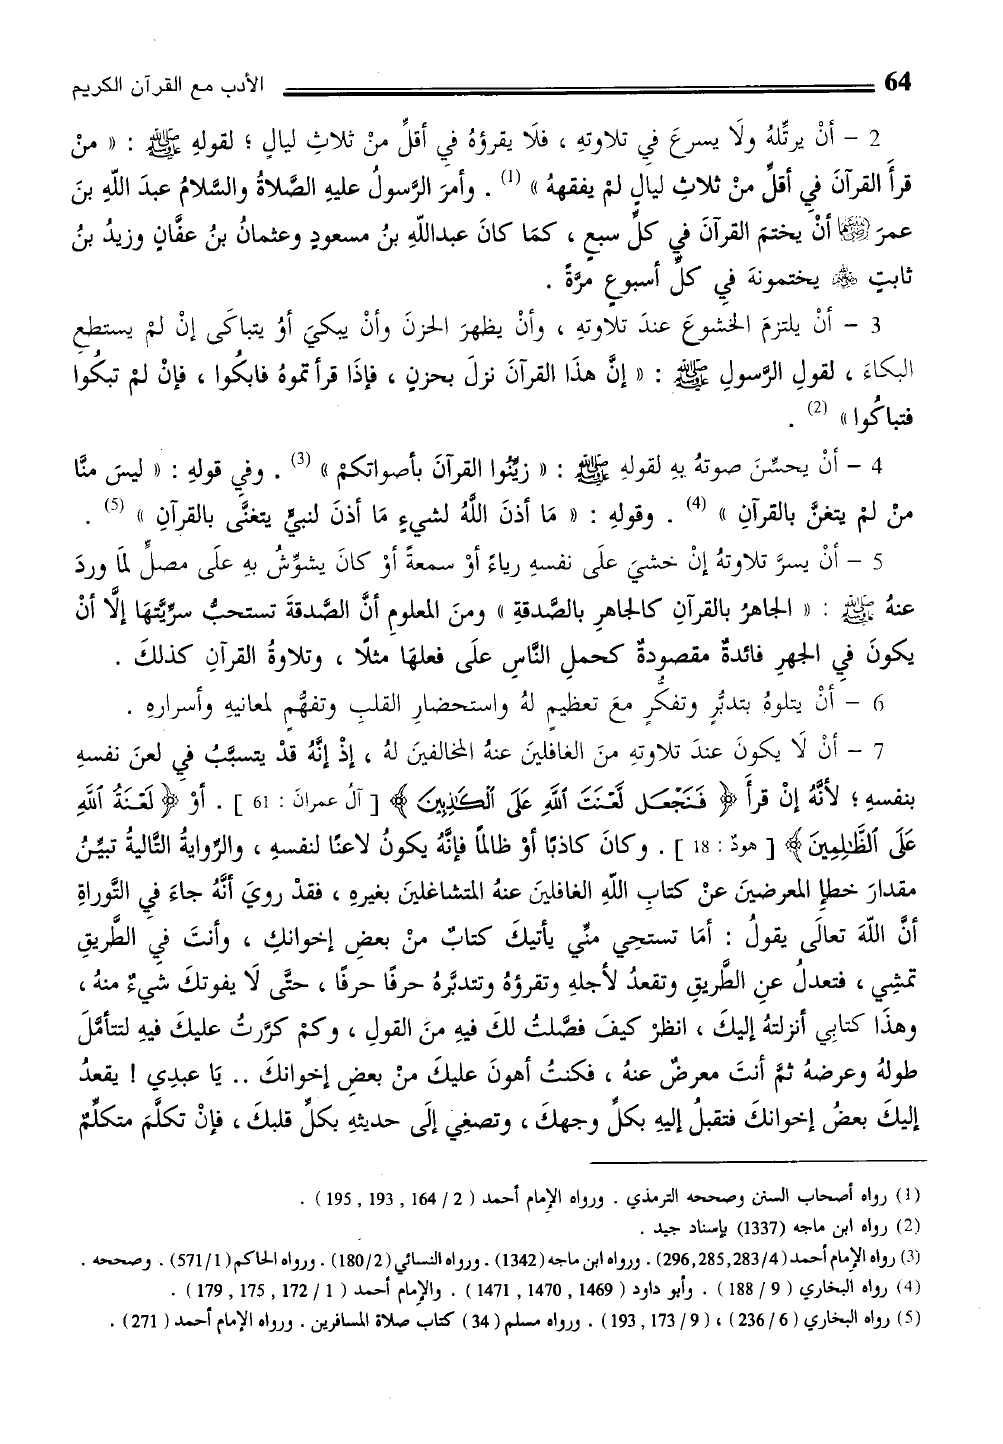 64 الأدب مع القرآن الكريم
2 – أنْ يرتِّلهُ ولَا يسرعَ في تلاوتهِ ، فلَا يقرؤهُ في أقلِّ منْ ثلاثِ ليالٍ ؛ لقولهِ ﷺ : « منْ
قرأَ القرآنَ في أقلِّ منْ ثلاثِ ليالٍ لمْ يفقههُ » (1) . وأمرَ الرَّسولُ عليهِ الصَّلاةُ والسَّلامُ عبدَ اللّهِ بنَ
عمرَ أنْ يختمَ القرآنَ في كلِّ سبعٍ ، كمَا كانَ عبداللّهِ بنُ مسعودٍ وعثمانُ بنُ عفَّانٍ وزيدُ بنُ
ثابتٍ يختمونهَ في كلِّ أسبوعٍ مرَّةً .
3 – أنْ يلتزمَ الخشوعَ عندَ تلاوتهِ ، وأنْ يظهرَ الحزنَ وأنْ يبكيَ أوْ يتباكَى إنْ لمْ يستطعِ
البكاءَ ، لقولِ الرَّسولِ ﷺ : « إنَّ هذَا القرآنَ نزلَ بحزنٍ ، فإذَا قرأتموهُ فابكُوا ، فإنْ لمْ تبكُوا
فتباكُوا » (2) .
4 – أنْ يحسِّنَ صوتهُ بهِ لقولهِ ﷺ : « زيِّنُوا القرآنَ بأصواتكمْ » (3) . وفي قولهِ : « ليسَ منَّا
منْ لمْ يتغنَّ بالقرآنِ » (4) . وقولهِ : « مَا أذنَ اللَّهُ لشيءٍ مَا أذنَ لنبيٍّ يتغنَّى بالقرآنِ » (5) .
5 – أنْ يسرَّ تلاوتهُ إنْ خشيَ علَى نفسهِ رياءً أوْ سمعةً أوْ كانَ يشوِّشُ بهِ علَى مصلٍّ لمَا وردَ
عنهُ ﷺ : « الجاهرُ بالقرآنِ كالجاهرِ بالصَّدقةِ » ومنَ المعلومِ أنَّ الصَّدقةَ تستحبُّ سرِّيَّتهَا إلَّا أنْ
يكونَ في الجهرِ فائدةٌ مقصودةٌ كحملِ النَّاسِ علَى فعلهَا مثلًا ، وتلاوةُ القرآنِ كذلكَ .
6 – أنْ يتلوهُ بتدبُّرٍ وتفكُّرٍ معَ تعظيمٍ لهُ واستحضارِ القلبِ وتفهُّمٍ لمعانيهِ وأسرارهِ .
7 – أنْ لَا يكونَ عندَ تلاوتهِ منَ الغافلينَ عنهُ المخالفينَ لهُ ، إذْ إنَّهُ قدْ يتسبَّبُ في لعنِ نفسهِ
بنفسهِ ؛ لأنَّهُ إنْ قرأَ ﴿ فَنَجْعَل لَّعْنَتَ ٱللَّهِ عَلَى ٱلْكَٰذِبِينَ ﴾ [ آلُ عمرانَ : 61 ] . أوْ ﴿ لَعْنَةُ ٱللَّهِ
عَلَى ٱلظَّٰلِمِينَ ﴾ [ هودٌ : 18 ] . وكانَ كاذبًا أوْ ظالمًا فإنَّهُ يكونُ لاعنًا لنفسهِ ، والرِّوايةُ التَّاليةُ تبيِّنُ
مقدارَ خطإِ المعرضينَ عنْ كتابِ اللّهِ الغافلينَ عنهُ المتشاغلينَ بغيرهِ ، فقدْ رويَ أنَّهُ جاءَ في التَّوراةِ
أنَّ اللّهَ تعالَى يقولُ : أمَا تستحِي منِّي يأتيكَ كتابٌ منْ بعضِ إخوانكِ ، وأنتَ في الطَّريقِ
تمشِي ، فتعدلُ عنِ الطَّريقِ وتقعدُ لأجلهِ وتقرؤهُ وتتدبَّرهُ حرفًا حرفًا ، حتَّى لَا يفوتكَ شيءٌ منهُ ،
وهذَا كتابي أنزلتهُ إليكَ ، انظرْ كيفَ فصَّلتُ لكَ فيهِ منَ القولِ ، وكمْ كرَّرتُ عليكَ فيهِ لتتأمَّلَ
طولهُ وعرضهُ ثمَّ أنتَ معرضٌ عنهُ ، فكنتُ أهونَ عليكَ منْ بعضِ إخوانكَ .. يَا عبدِي ! يقعدُ
إليكَ بعضُ إخوانكَ فتقبلُ إليهِ بكلِّ وجهكَ ، وتصغِي إلَى حديثهِ بكلِّ قلبكَ ، فإنْ تكلَّمَ متكلِّمٌ
(1) رواه أصحاب السنن وصححه الترمذي . ورواه الإمام أحمد ( 2 / 164 , 193 , 195 ) .
(2) رواه ابن ماجه (1337) بإسناد جيد .
(3) رواه الإمام أحمد (4/ 283,285,296). ورواه ابن ماجه (1342) .ورواه النسائي (2/ 180) . ورواه الحاكم (1/ 571) . وصححه .
(4) رواه البخاري ( 9 / 188 ) . وأبو داود ( 1469 , 1470 , 1471 ) . والإمام أحمد ( 1 / 172 , 175 , 179 ) .
(5) رواه البخاري ( 6 / 236 ) ، ( 9 / 173 , 193 ) . ورواه مسلم ( 34 ) كتاب صلاة المسافرين . ورواه الإمام أحمد ( 271 ) .